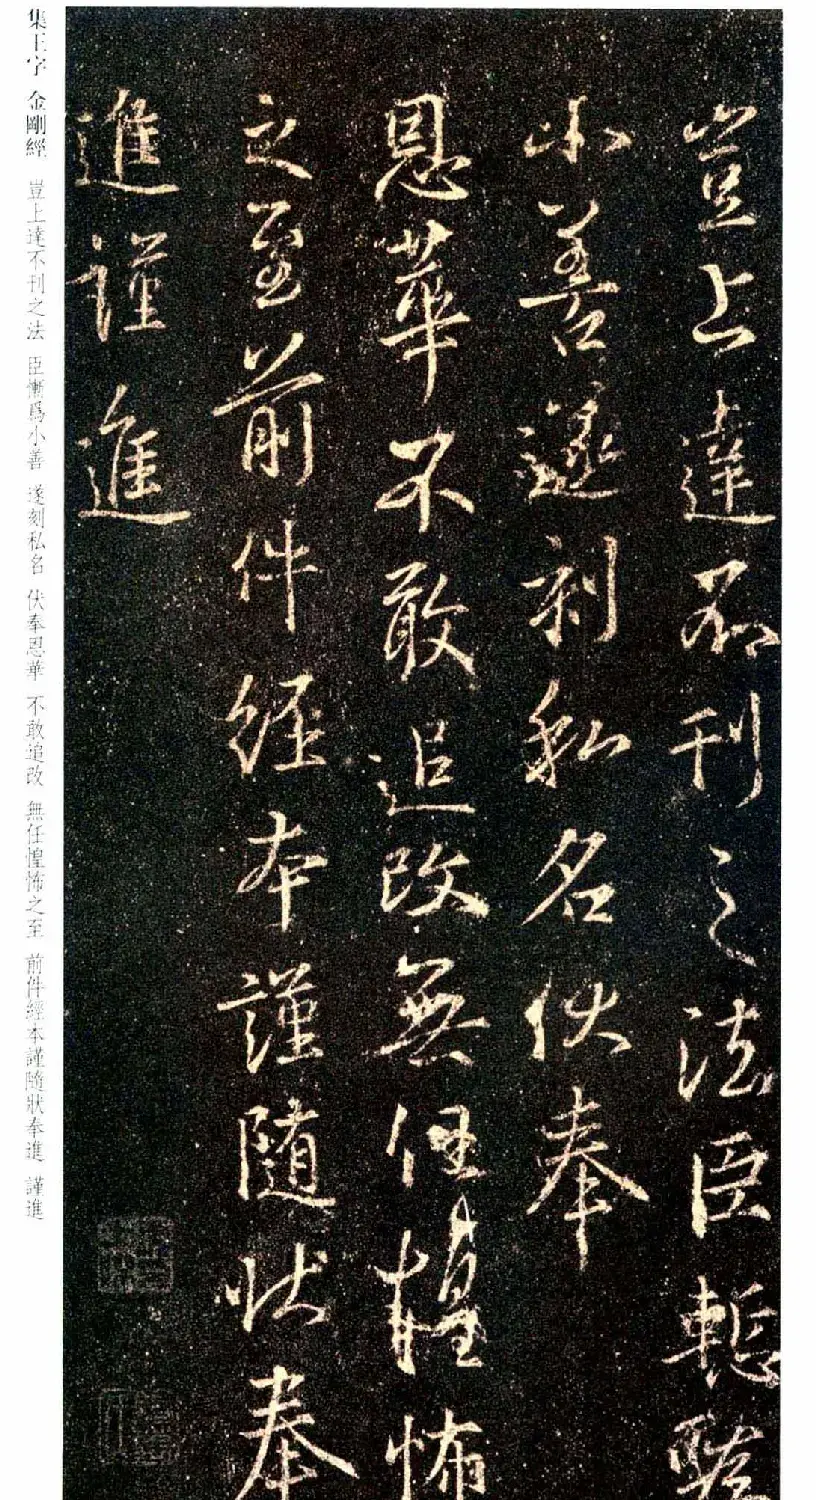 豈上達不刊之法臣慙
小善遂刻私名伏奉
恩華不敢追改無任惶怖
之至前件經本謹隨狀奉
進謹進
集王字 金剛經 豈上達不刊之法 臣慚爲小善 遂刻私名 伏奉恩華 不敢追改 無任惶怖之至 前件經本謹隨狀奉進 謹進